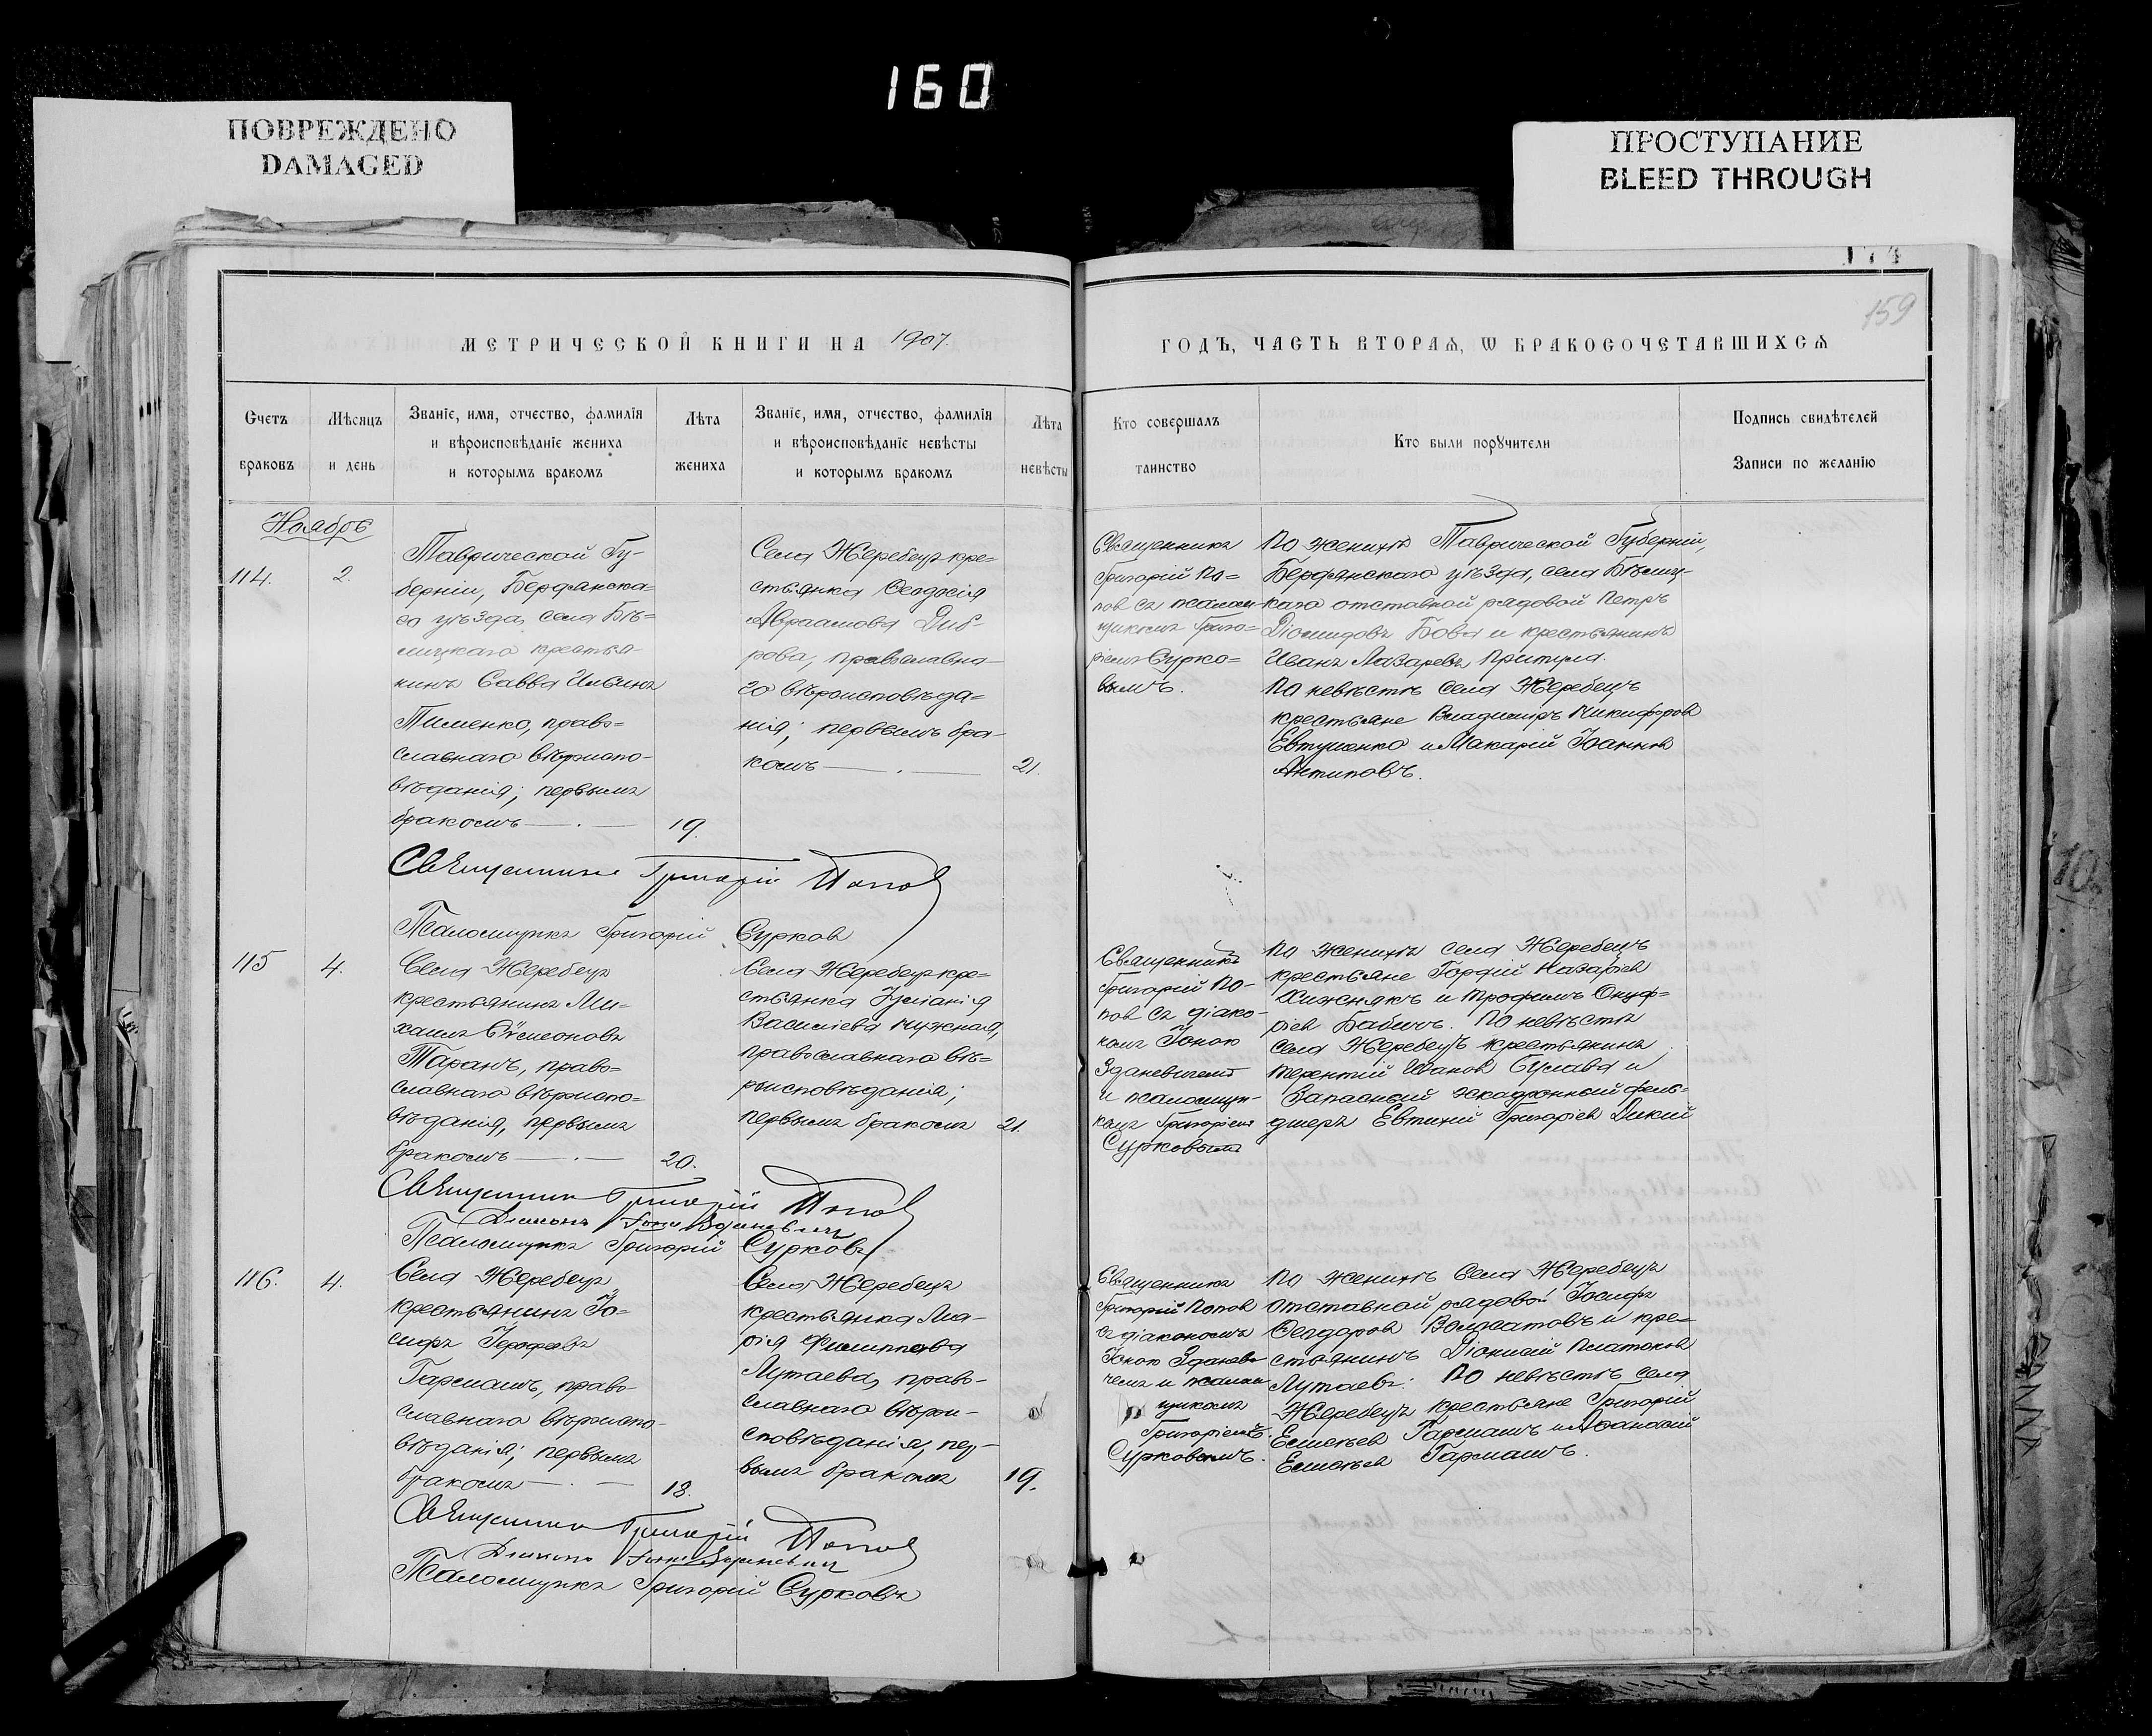 160
ПОВРЕЖДЕНО
DAMAGED
ПРОСТУПАНИЕ
BLEED THROUGH
174
159
МЕТРИЧЕСКОЙ КНИГИ НА 1907.
ГОДЪ, ЧАСТЬ ВТОРАѦ, Ѡ БРАКОСОЧЕТАВШИХСѦ
Счетъ
браковъ
Мѣсяцъ
и день
Званіе, имя, отчество, фамилія
и вѣроисповѣданіе жениха
и которымъ бракомъ
Лѣта
жениха
Званіе, имя, отчество, фамилія
и вѣроисповѣданіе невѣсты
и которымъ бракомъ
Лѣта
невѣсты
Кто совершалъ
таинство
Кто были порꙋчители
Подпись свидѣтелей
Записи по желанію
Ноябрь
114.
2.
Таврической Гу-
берніи, Бердянска-
го уѣзда, села Бѣ-
лицкаго крестья-
нинъ Савва Ильинъ
Тименко, право-
славнаго вѣроиспо-
вѣданія; первымъ
бракомъ
19.
Села Жеребецъ кре-
стьянка Ѳеодосія
Авраамова Диб-
рова, православна-
го вѣроисповѣда-
нія; первымъ бра-
комъ
21.
Священникъ
Григорій По-
повъ съ псалом-
щикомъ Григо-
ріемъ Сурко-
вымъ.
По женихѣ Таврической Губерніи,
Бердянскаго уѣзда, села Бѣлиц-
каго отставной рядовой Петръ
Діомидовъ Бова и крестьянинъ
Иванъ Лазаревъ Притула.
По невѣстѣ села Жеребецъ
крестьяне Владиміръ Никифоровъ
Евтушенко и Макарій Іоанновъ
Антиповъ.
Священникъ Григорій Попов
Псаломщикъ Григорій Сурков
115
4.
Села Жеребецъ
крестьянинъ Ми-
хаилъ Сѵмеоновъ
Таранъ, право-
славнаго вѣроиспо-
вѣданія, первымъ
бракомъ
20.
Села Жеребецъ кре-
стьянка Іуліанія
Василіева Нужная,
православнаго вѣ-
роисповѣданія;
первымъ бракомъ
21.
Священникъ
Григорій По-
повъ съ діако-
номъ Іоною
Зданевичемъ
и псаломщи-
комъ Григоріемъ
Сурковымъ
По женихѣ села Жеребецъ
крестьяне Гордій Назаріевъ
Хижнякъ и Трофимъ Онуф-
ріевъ Бабичъ. По невѣстѣ
села Жеребецъ крестьянинъ
Терентій Иванов Булава и
запасный эскадронный фель-
дшеръ Евтихій Григоріевъ Дикий
Священникъ Григорій Попов
Діаконъ Іона Зданевичъ
Псаломщикъ Григорій Сурковъ
116.
4.
Села Жеребецъ
крестьянинъ Іо-
сифъ Іерофеевъ
Гармашъ, право-
славнаго вѣроиспо-
вѣданія; первымъ
бракомъ
18.
Села Жеребецъ
крестьянка Ма-
рія Филиппова
Лутаева, право-
славнаго вѣрои-
сповѣданія, пер-
вымъ бракомъ
19.
Священникъ
Григорій Попов
съ діакономъ
Іоною Зданеви-
чемъ и псалом-
щикомъ
Григоріемъ
Сурковымъ.
По женихѣ Села Жеребецъ
отставной рядовой Іосифъ
Ѳеодоровъ и кре-
стьянинъ Діонисій Платонов
Лутаевъ. По невѣстѣ села
Жеребецъ крестьяне Григорій
Гармашъ и Аѳанасій
Гармашъ.
Священникъ Григорій Попов
Діаконъ Іона Зданевичъ
Псаломщикъ Григорій Сурковъ